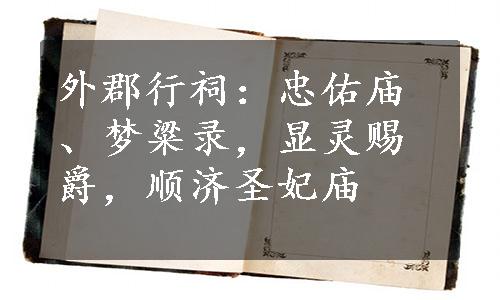 外郡行祠：忠佑庙
、梦粱录，显灵赐
爵，顺济圣妃庙